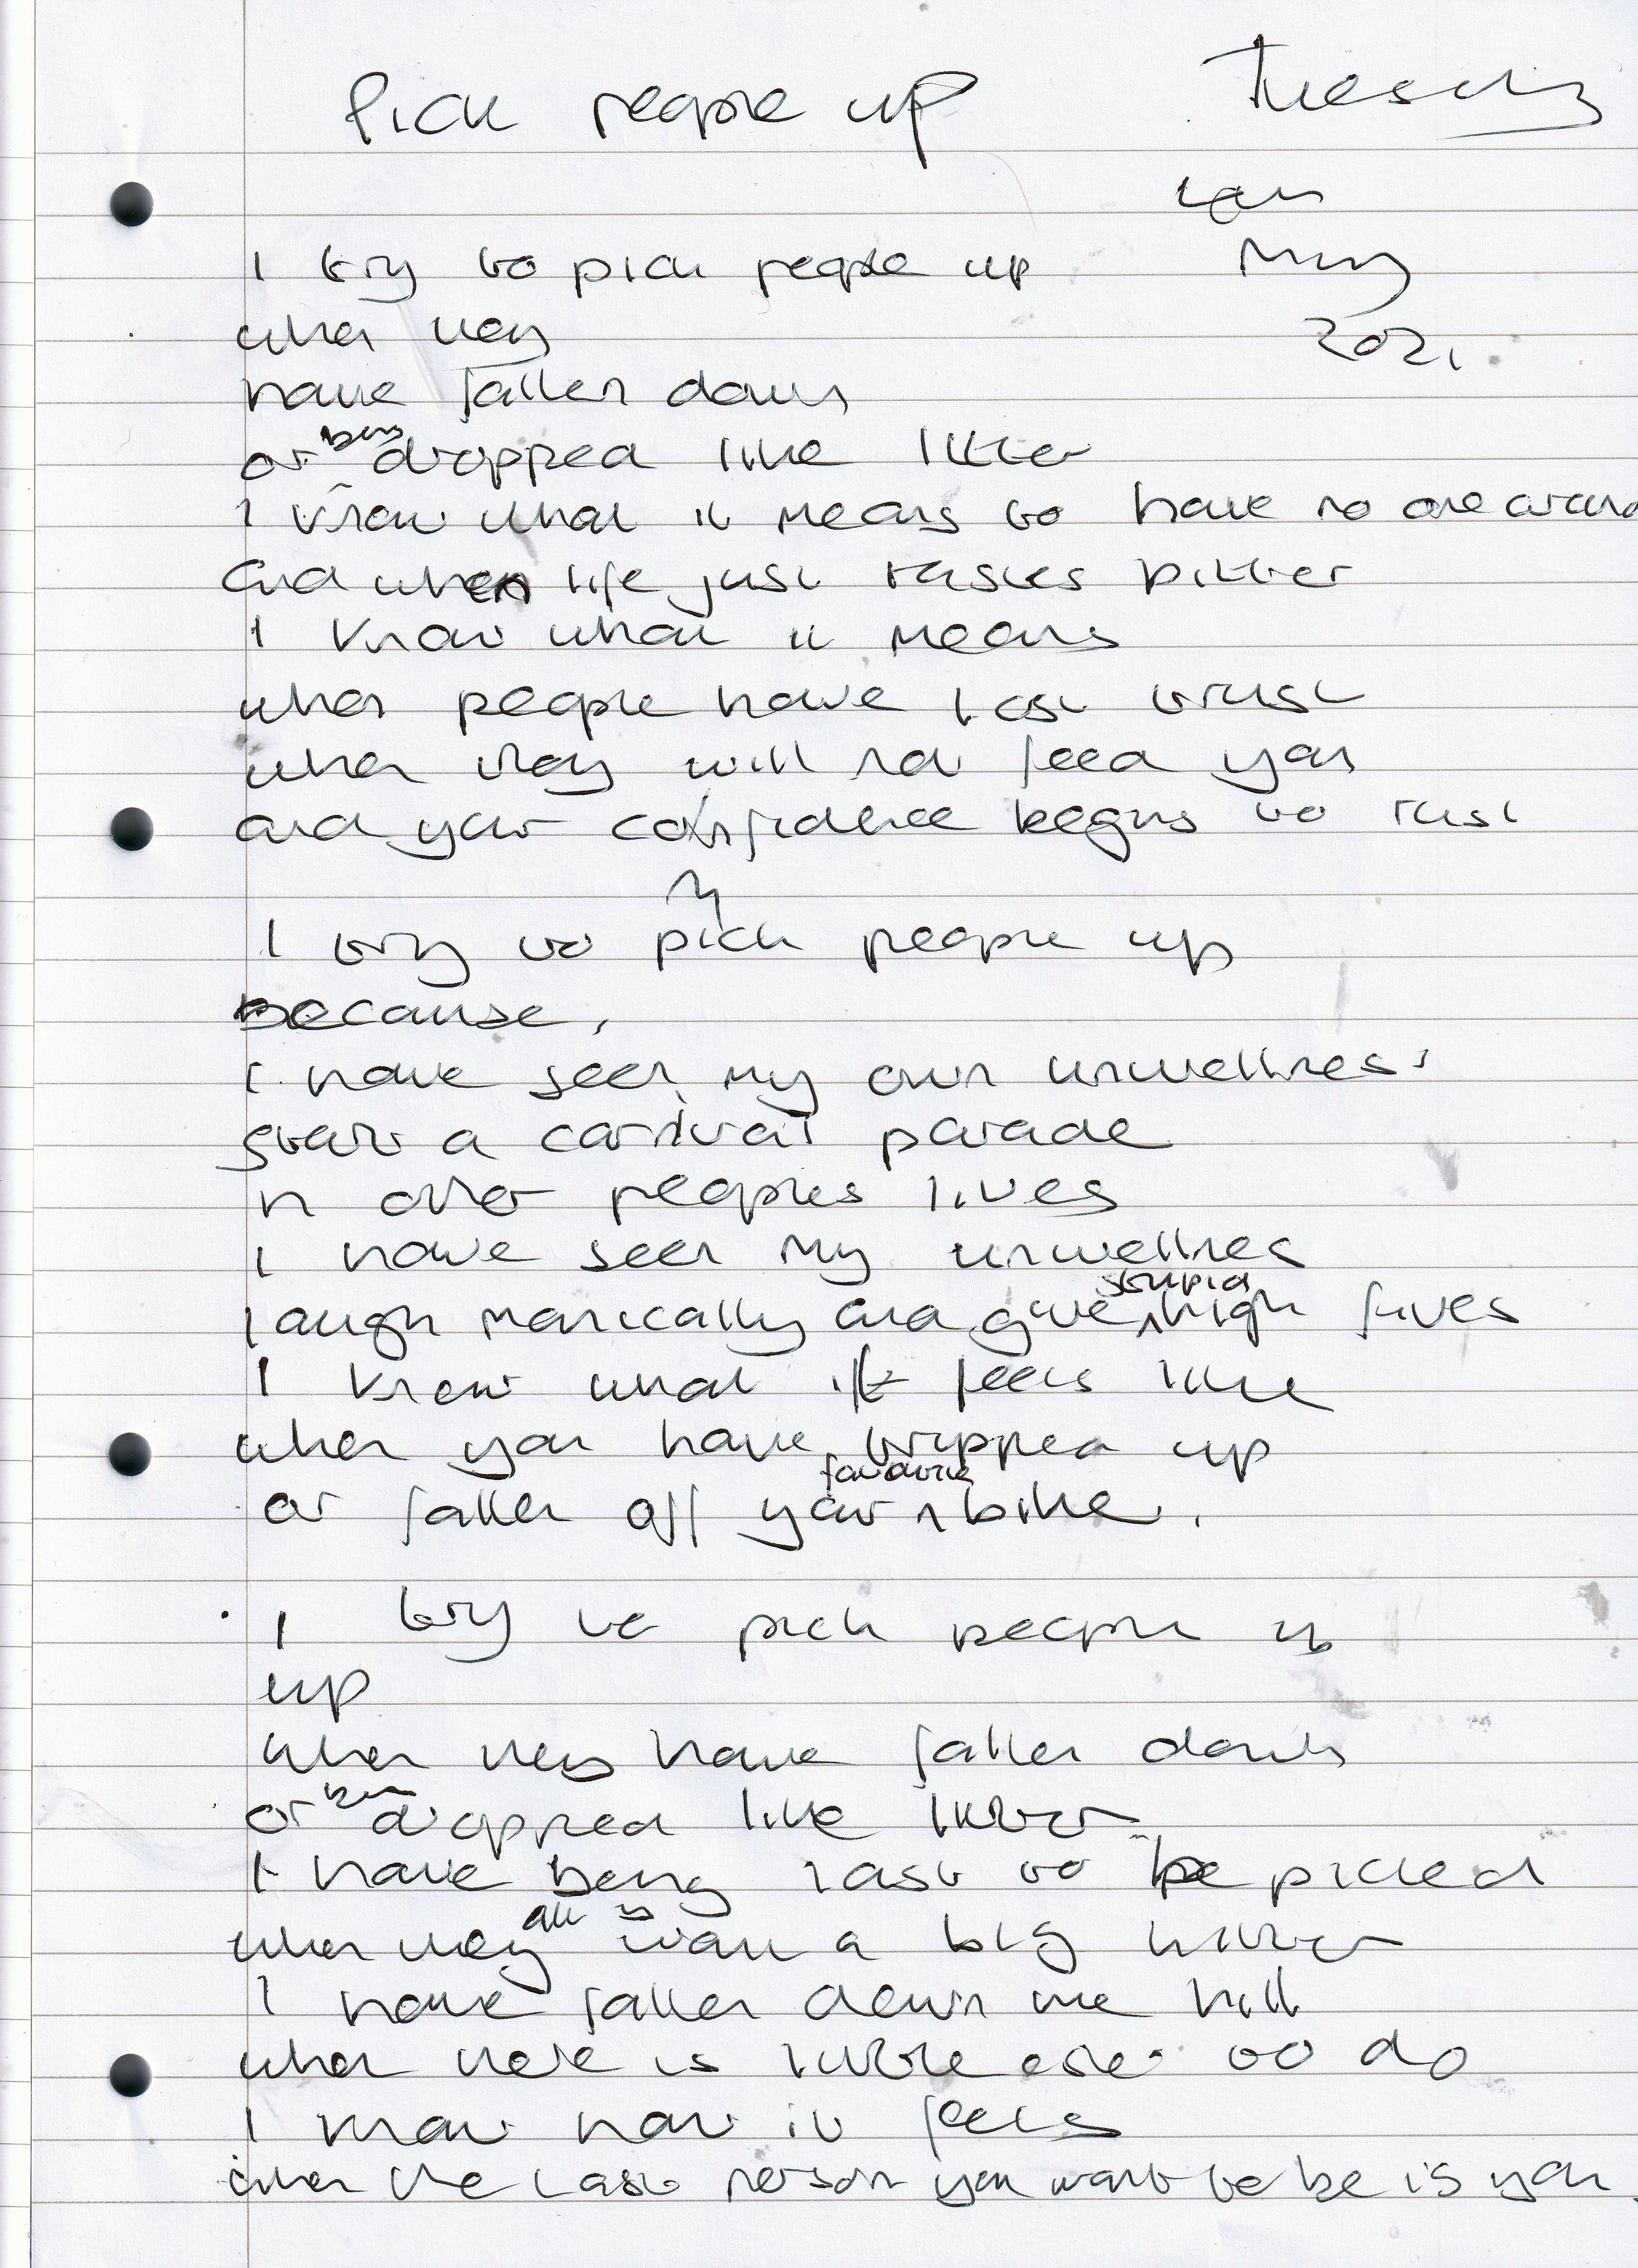 Pick people up
Tuesday
May
2021.
I try to pick people up
when they
have fallen down
or been dropped like litter
I know what it means to have no one around
and when life just tastes bitter
I know what it means
when people have lost trust
when they will not feed you
and your confidence begins to rust
I try to pick people up
because,
I have seen my own unwellness
start a carnival parade
in other peoples lives
I have seen my unwellness
laugh manically and give stupid high fives
I know what it feels like
when you have tripped up
or fallen off your favourite bike.
I try to pick people
up
when they have fallen down
or been dropped like litter
I have being last to be picked
when they all want a big hitter
I have fallen down the hill
when there is little else to do
I know how it feels
when the last person you want to be is you.